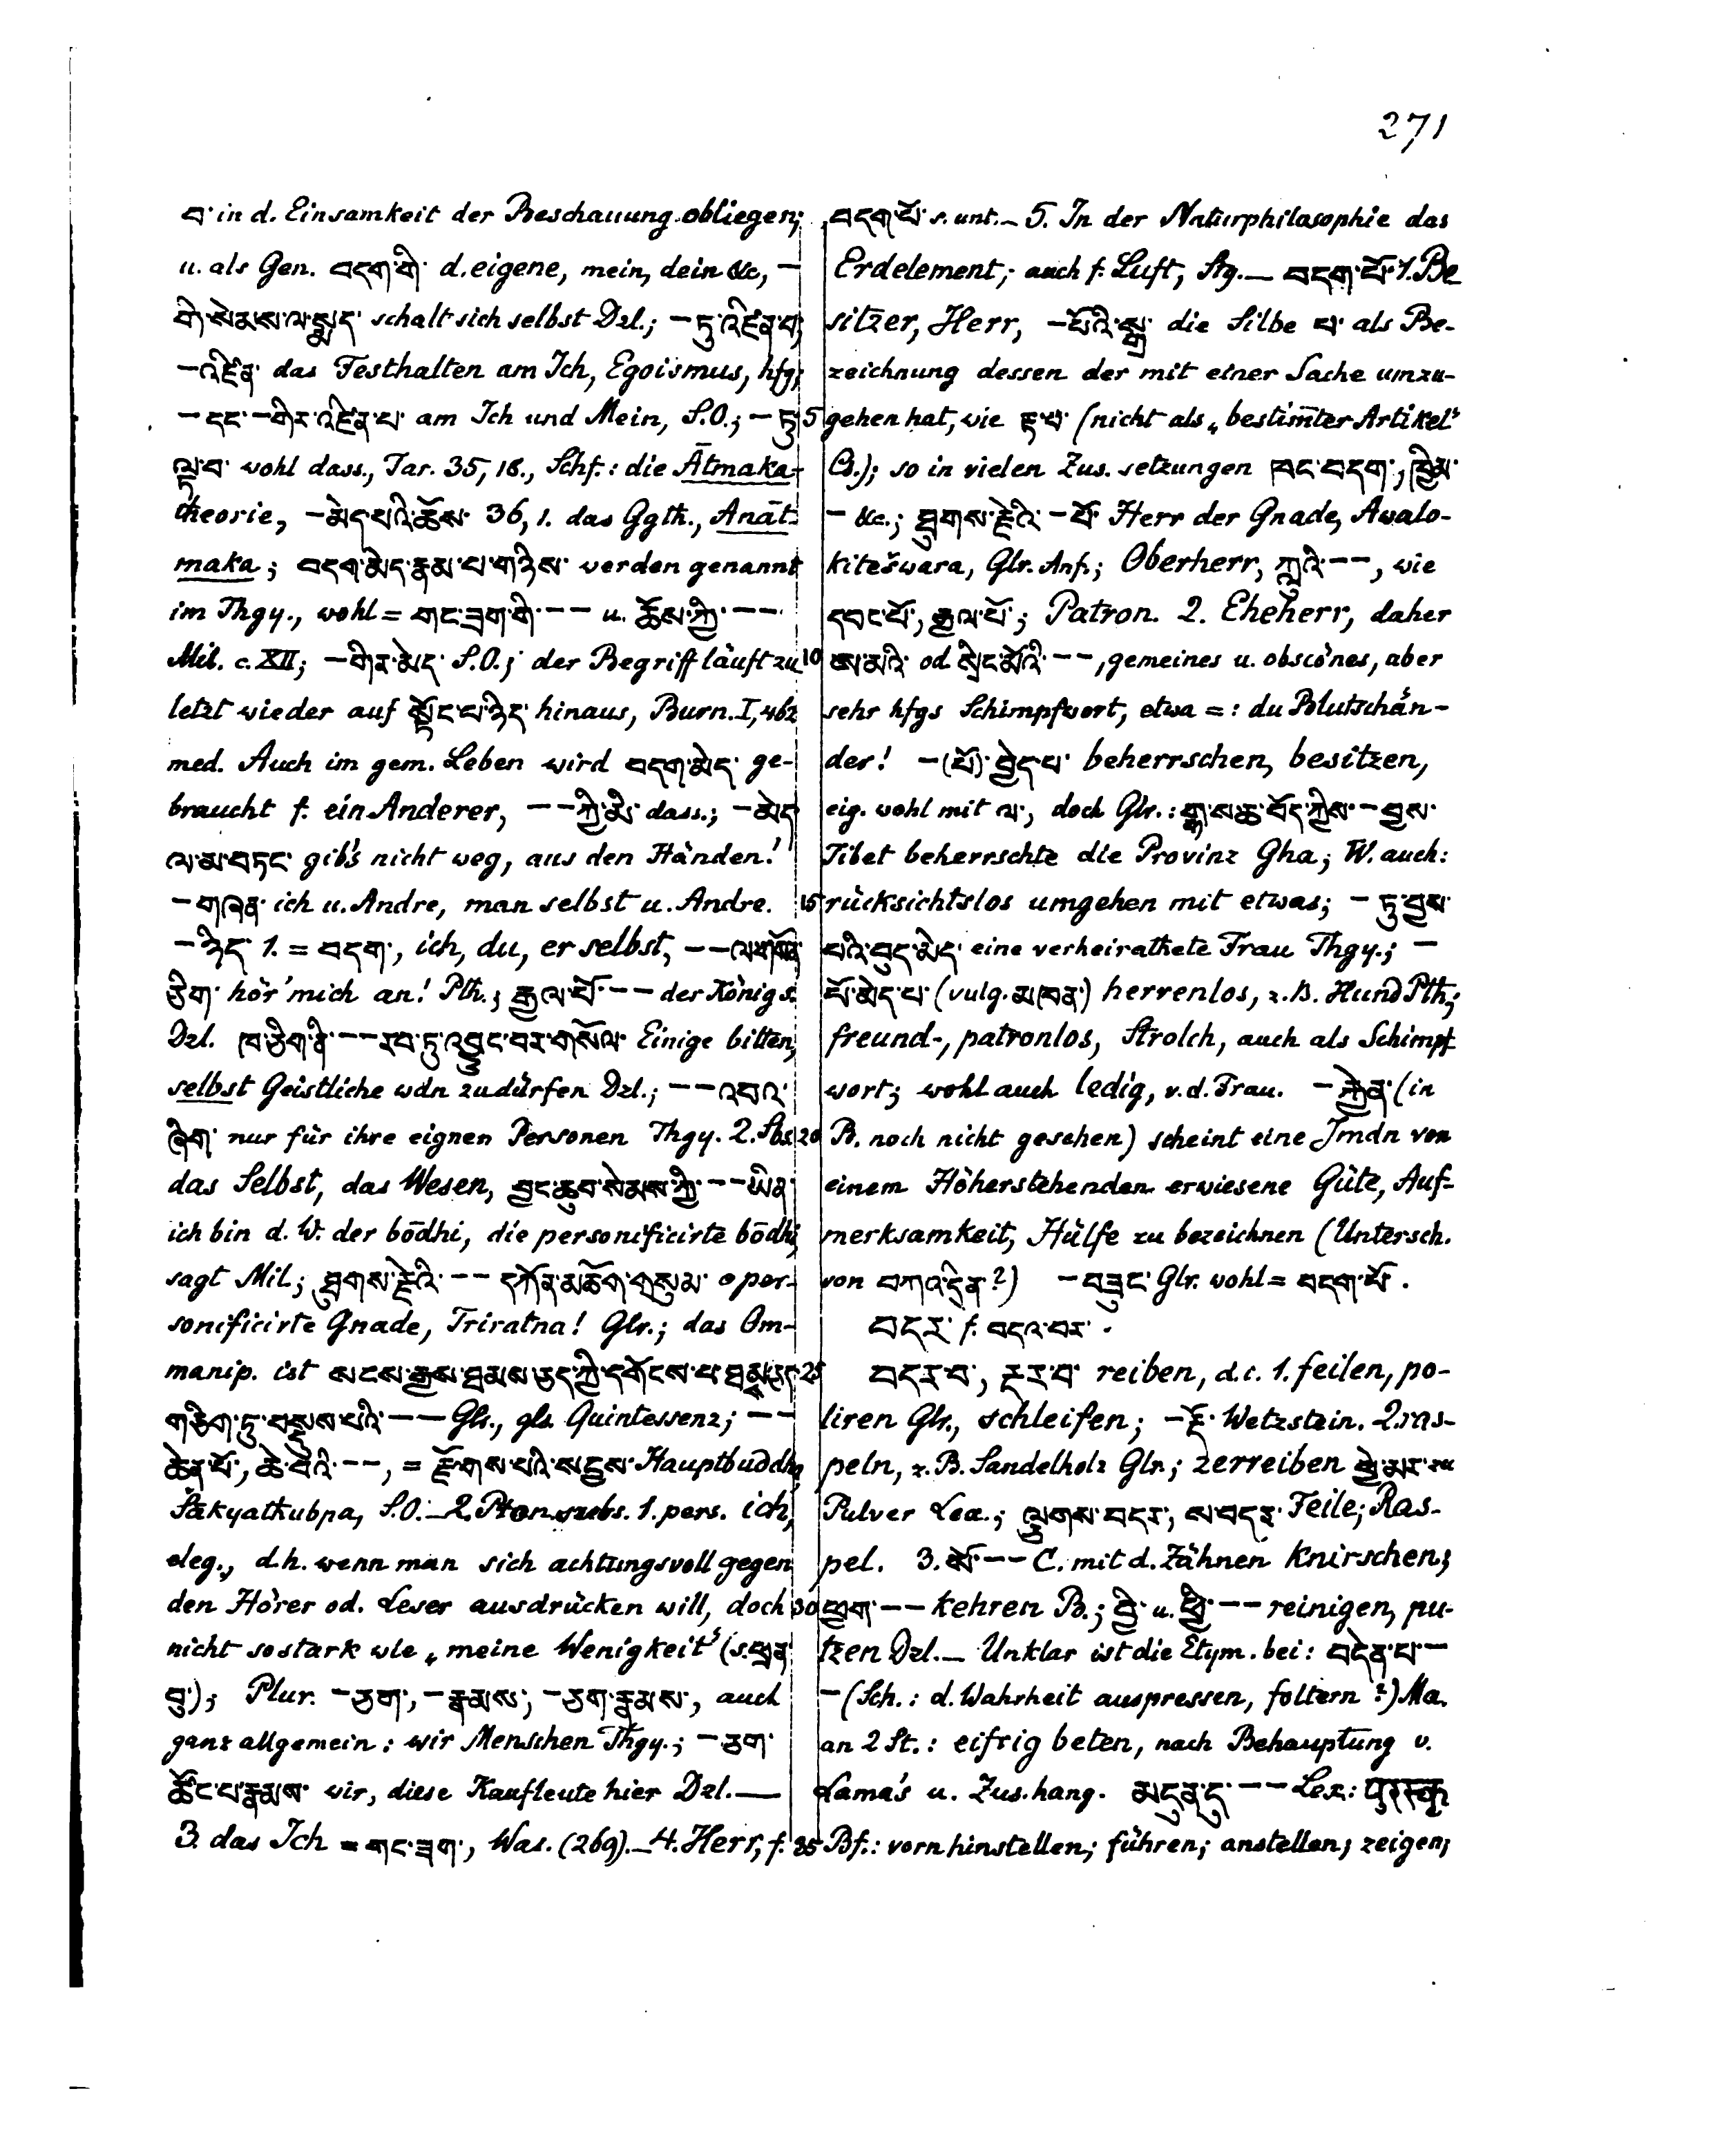 271
བ་ in d. Einsamkeit der Beschauung obliegen;
u. als Gen. བདག་གི་ d. eigene, mein, dein &c, –
གི་སེམས་ལ་སྨད་ schalt sich selbst Dzl.; – ཏུ་འཛིན་པ,
– འཛིན་ das Festhalten am Ich, Egoismus, hfg;
– དང་ – གིར་འཛིན་པ་ am Ich und Mein, S.O.; – ཏུ་
ལྟ་བ་ wohl dass., Tar. 35, 18., Schf.: die Ātmaka-
theorie, – མེད་པའི་ཆོས་ 36, 1. das Ggth., Anāt-
maka; བདག་མེད་རྣམ་པ་གཉིས་ werden genannt
im Thgy., wohl = གང་ཟག་གི་ – – u. ཆོས་ཀྱི་ – –
Mil. c. XII; – གིར་མེད་ S.O.; der Begriff läuft zu
letzt wieder auf སྟོང་པ་ཉིད་ hinaus, Burn. I, 462
med. Auch im gem. Leben wird བདག་མེད་ ge-
braucht f. ein Anderer, – – ཀྱི་མི་ dass.; – མེད
ལ་མ་བཏང་ gib's nicht weg, aus den Händen!
– གཞན་ ich u. Andre, man selbst u. Andre.
– ཉིད་ 1. = བདག་, ich, du, er selbst, – – ལ་གསོན་
ཅིག་ hör' mich an! Pth.; རྒྱལ་པོ་ – – der König s.
Dzl. ཁ་ཅིག་ནི་ – – རབ་ཏུ་འབྱུང་བར་གསོལ་ Einige bitten,
selbst Geistliche wdn zu dürfen Dzl.; – – འབའ་
ཞིག་ nur für ihre eignen Personen Thgy. 2. Sbs
das Selbst, das Wesen, བྱང་ཆུབ་སེམས་ཀྱི་ – – ཡིན་
ich bin d. W. der bōdhi, die personificirte bōdhi,
sagt Mil; ཐུགས་རྗེའི་ – – དཀོན་མཆོག་གསུམ་ o per-
sonificirte Gnade, Triratna! Glr.; das Om-
manip. ist སངས་རྒྱས་ཐམས་ཅད་ཀྱི་དགོངས་པ་ཐམས་ཅད་
གཅིག་ཏུ་བསྡུས་པའི་ – – Glr., gls. Quintessenz; – –
ཆེན་པོ་, ཆེ་བའི་ – –, = རྫོགས་པའི་སངྒྱས་ Hauptbuddha,
Šākyathubpa, S.O. – 2. Pron. subs. 1. pers. ich,
eleg., d.h. wenn man sich achtungsvoll gegen
den Hörer od. Leser ausdrücken will, doch
nicht so stark wie „meine Wenigkeit“ (s. ཕྲན་
བུ་); Plur. – ཅག་, – རྣམས་, – ཅག་རྣམས་, auch
ganz allgemein: wir Menschen Thgy.; – ཅག་
ཚོང་པ་རྣམས་ wir, diese Kaufleute hier Dzl. –
3. das Ich = གང་ཟག་, Was. (269). – 4. Herr, f.
བདག་པོ་ s. unt. – 5. In der Naturphilosophie das
Erdelement; auch f. Luft, Stg. – བདག་པོ་ 1. Be
sitzer, Herr, – པོའི་སྒྲ་ die Silbe པ་ als Be-
zeichnung dessen der mit einer Sache umzu-
5 gehen hat, wie རྟ་པ་ (nicht als „bestim̅ter Artikel“
Cs.); so in vielen Zus. setzungen ཁང་བདག་, ཁྱིམ་
– &c.; ཐུགས་རྗེའི་ – པོ་ Herr der Gnade, Awalo-
kitešwara, Glr. Anf.; Oberherr, ཀླུའི་ – –, wie
དབང་པོ་, རྒྱལ་པོ་; Patron. 2. Eheherr, daher
10 མ་མའི་ od. སྲིང་མོའི་ – –, gemeines u. obscönes, aber
sehr hfgs Schimpfwort, etwa =: du Blutschän-
der! – (པོ)་བྱེད་པ་ beherrschen, besitzen,
eig. wohl mit ལ་, doch Glr.: གྷ་ས་ཆ་བོད་ཀྱིས་ – བྱས་
Tibet beherrschte die Provinz Gha; W. auch:
15 rücksichtslos umgehen mit etwas; – ཏུ་བྱས་
པའི་བུད་མེད་ eine verheirathete Frau Thgy.; –
པོ་མེད་པ་ (vulg. མཁན་) herrenlos, z.B. Hund Pth,;
freund-, patronlos, Strolch, auch als Schimpf
wort; wohl auch ledig, v. d. Frau. – རྐྱེན་ (in
20 B. noch nicht gesehen) scheint eine Jmdn von
einem Höherstehenden erwiesene Güte, Auf-
merksamkeit, Hülfe zu bezeichnen (Untersch.
von བཀའ་དྲིན་?) – བཟུང་ Glr. wohl = བདག་པོ་.
བདར་ f. བདའ་བར་.
25 བདར་བ་, རྡར་བ་ reiben, d.i. 1. feilen, po-
liren Glr., schleifen; – རྡོ་ Wetzstein. 2. ras-
peln, z.B. Sandelholz Glr.; zerreiben ཕྱེ་མར་ zu
Pulver Lex.; ལྕགས་བདར་, ས་བདར་ Feile; Ras-
pel. 3. སོ་ – – C. mit d. Zähnen knirschen;
30 ཕྱག་ – – kehren B.; བྱི་ u. ཕྱི་ – – reinigen, pu-
tzen Dzl. – Unklar ist die Etym. bei: བདེན་པ་ –
– (Sch.: d. Wahrheit auspressen, foltern?) Ma.
an 2 St.: eifrig beten, nach Behauptung v.
Lama's u. Zus.hang. མདུན་དུ་ – – Lex.:
35 Bf.: vorn hinstellen; führen; anstellen; zeigen;